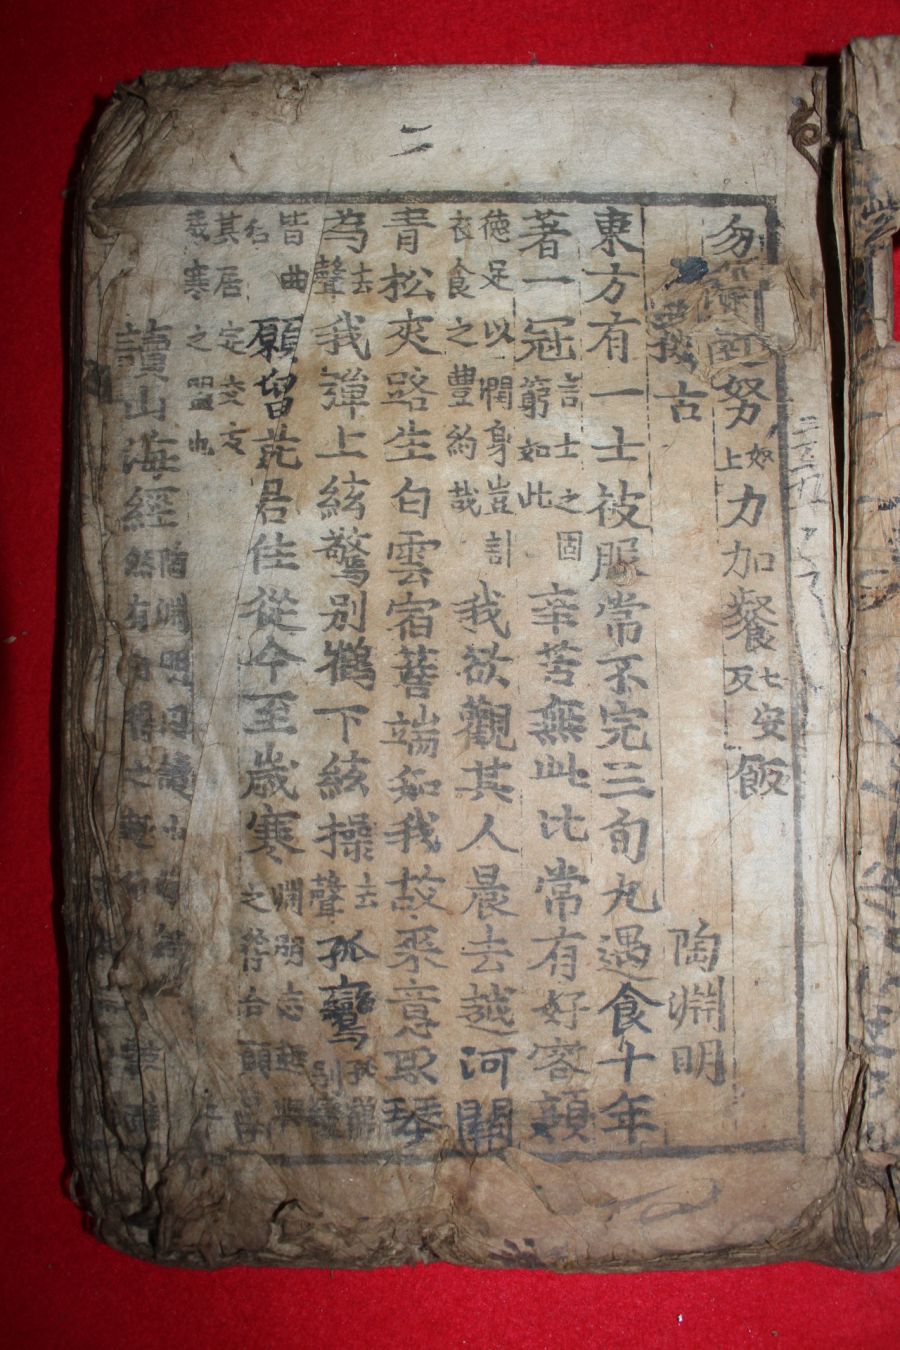 二
勿努如上力加餐七安反飯
擬古　陶淵明
東方有一士被服常不完三旬九遇食十年
著一冠言士之固窮如此辛苦無此比常有好容顔
德足以潤身豈計衣食之豊約哉我欲觀其人晨去越河關
青松夾路生白雲宿簷端知我故來意取琴
為去聲我彈上絃驚別鶴下絃操去聲孤鸞
皆曲名願留就君住從今至歲寒淵明志趣與之符合願留
其居定交友歲寒之盟也
讀山海經陶淵明因讀山然有自得之趣